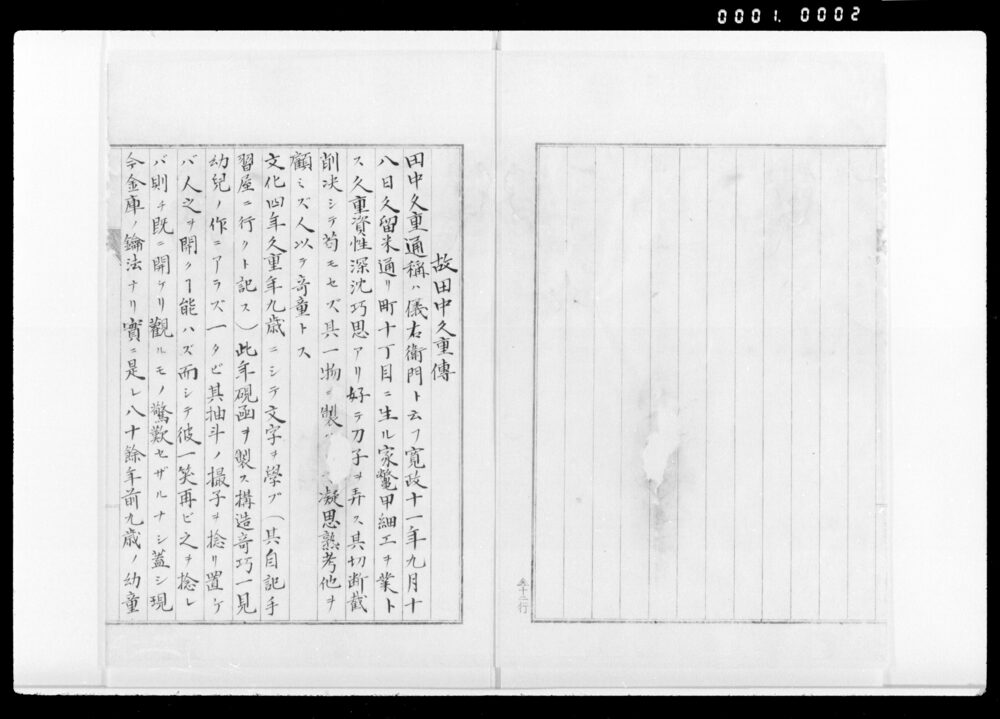 0001. 0002
全十二行
故田中久重傳
田中久重通稱ハ儀右衛門ト云フ寛政十一年九月十
八日久留米通リ町十丁目ニ生ル家鼈甲細工ヲ業ト
ス久重資性深沈巧思アリ好テ刀子ヲ弄ス其切断截
削决シテ苟モセズ其一物ヲ製 凝思熟考他ヲ
顧ミズ人以テ竒童トス
文化四年久重年九歳ニシテ文字ヲ學ブ(其自記手
習屋ニ行クト記ス)此年硯函ヲ製ス構造竒巧一見
幼兒ノ作ニアラズ一タビ其抽斗ノ撮子ヲ捻リ置ケ
バ人之ヲ開クヿ能ハズ而シテ彼一笑再ビ之ヲ捻レ
バ則チ既ニ開ケリ觀ルモノ驚歎セザルナシ蓋シ現
今金庫ノ鑰法ナリ實ニ是レ八十餘年前九歳ノ幼童